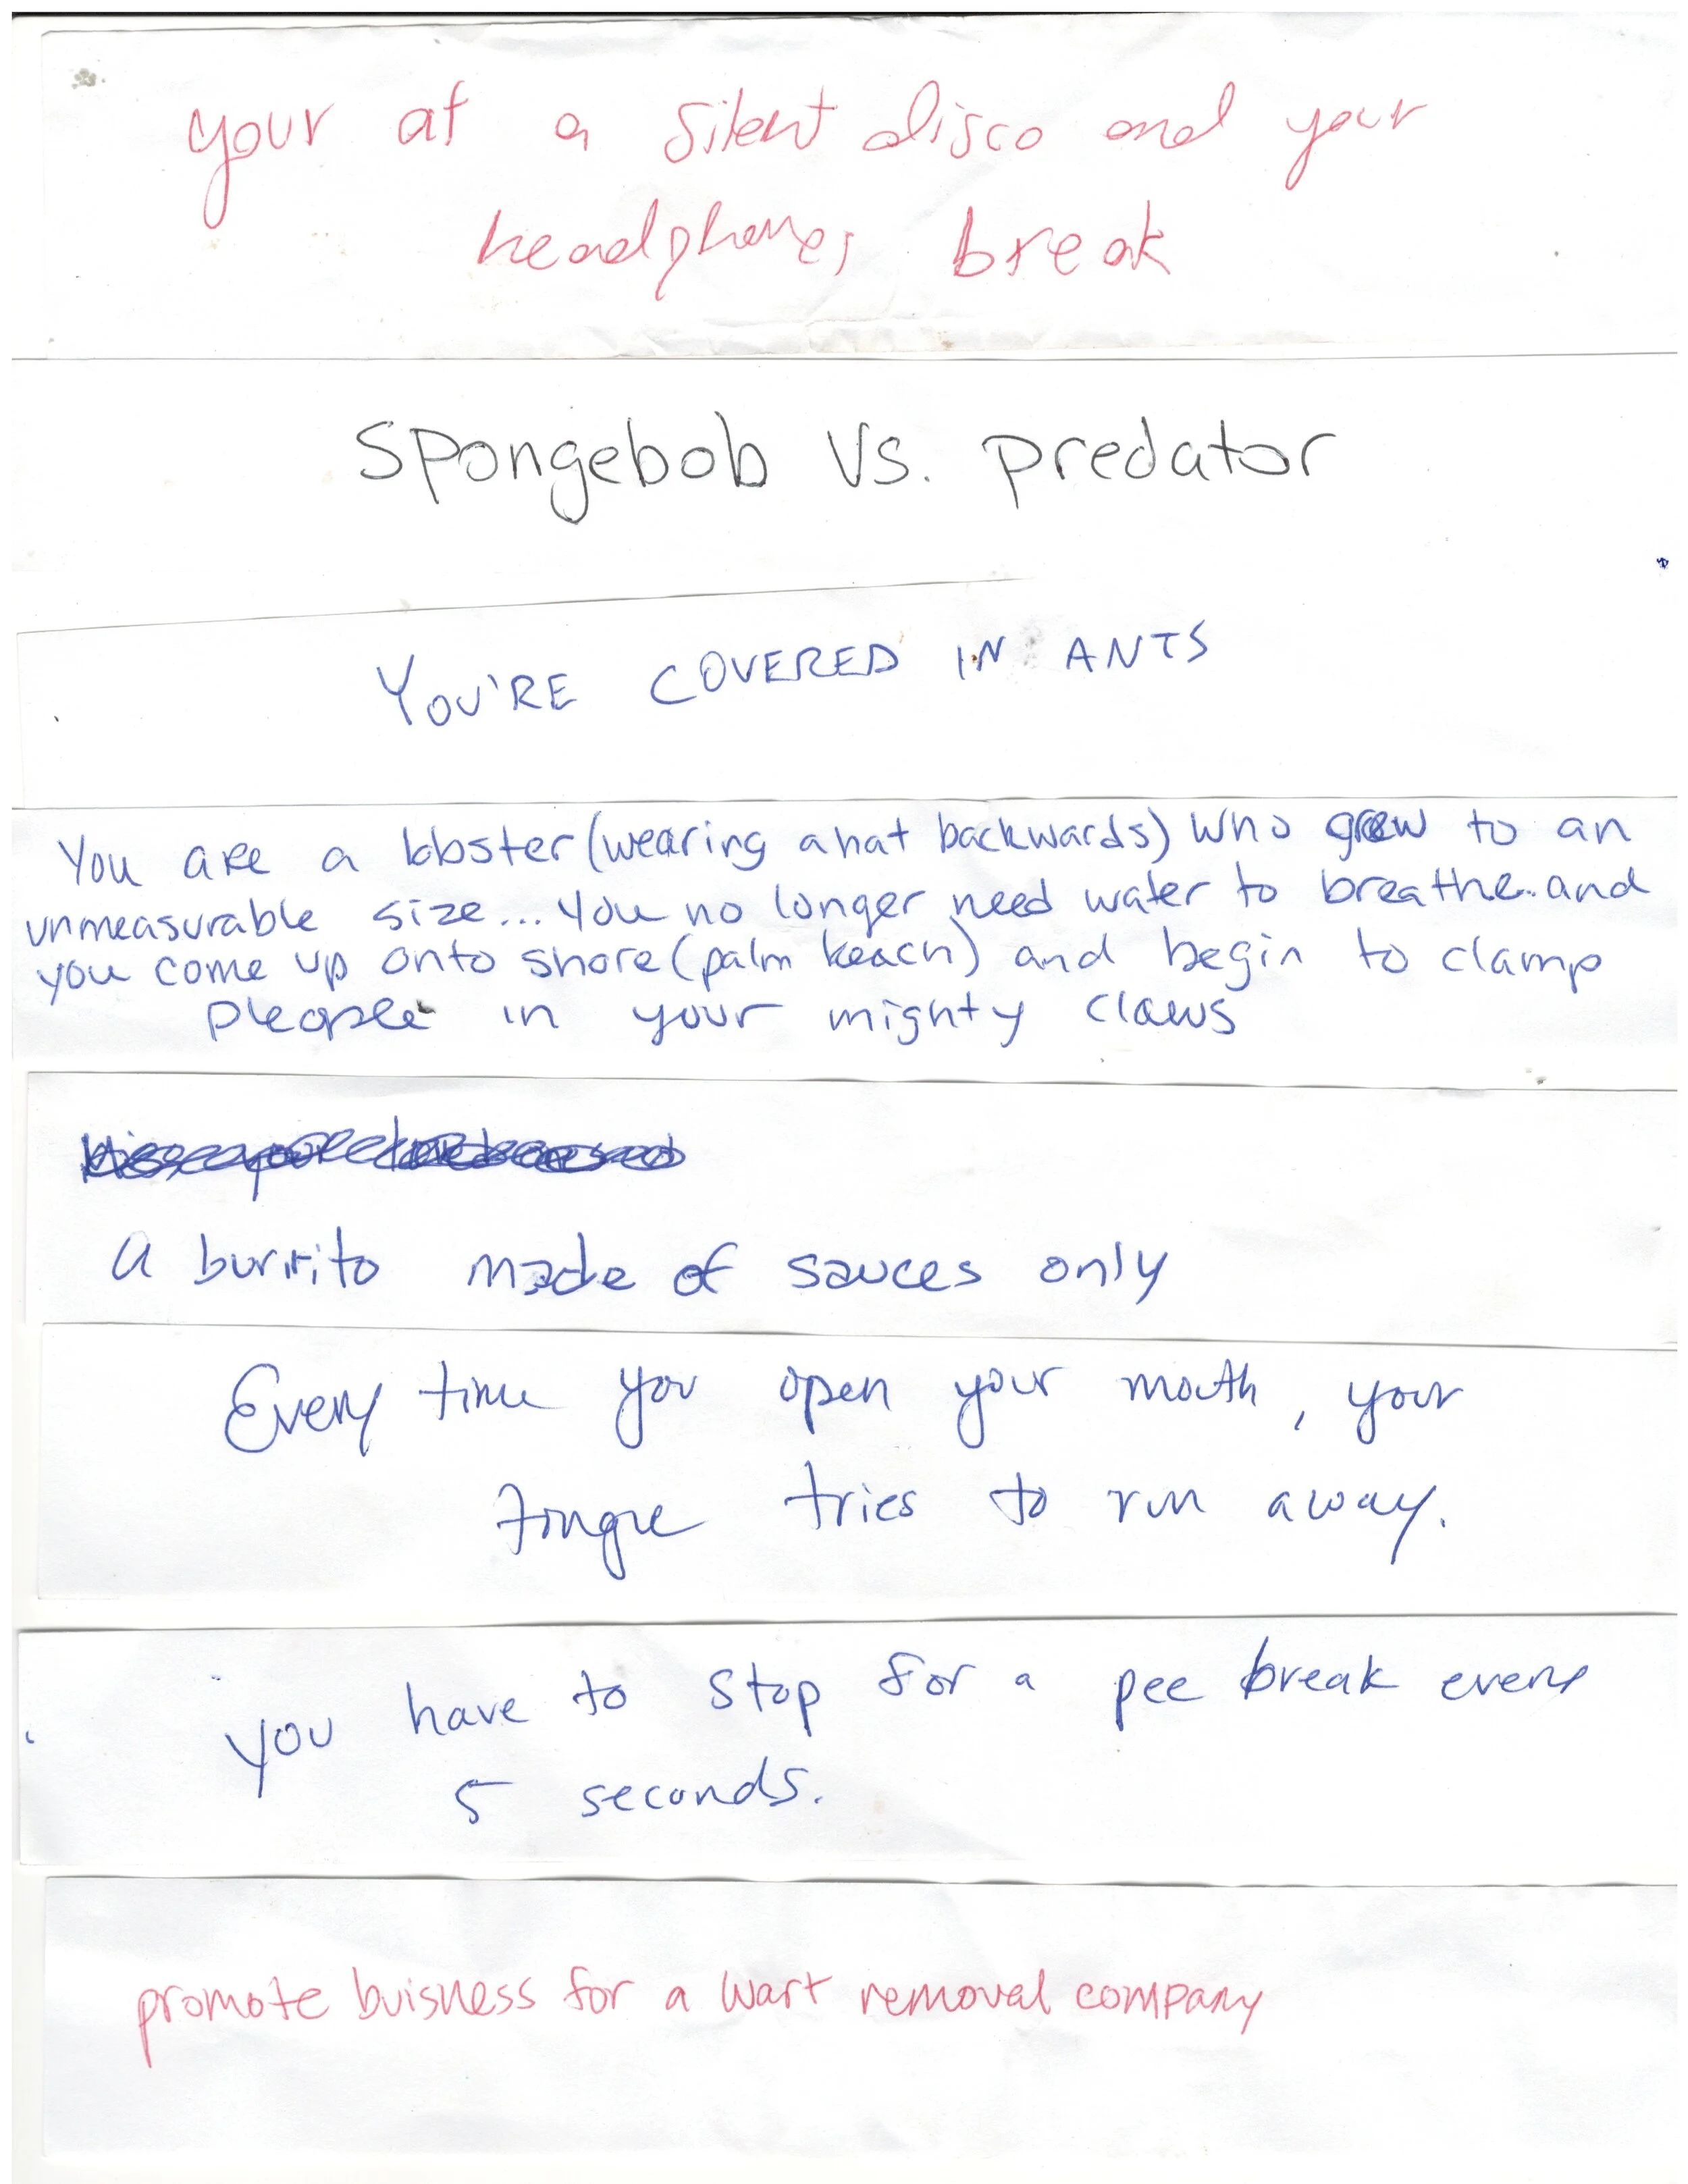 your at a silent disco and your
headphones break
Spongebob vs. predator
YOU'RE COVERED IN ANTS
You are a lobster (wearing a hat backwards) who grew to an
unmeasurable size... you no longer need water to breathe and
you come up onto shore (palm beach) and begin to clamp
people in your mighty claws
a burrito made of sauces only
Every time you open your mouth, your
tongue tries to run away.
you have to stop for a pee break every
5 seconds.
promote buisness for a wart removal company